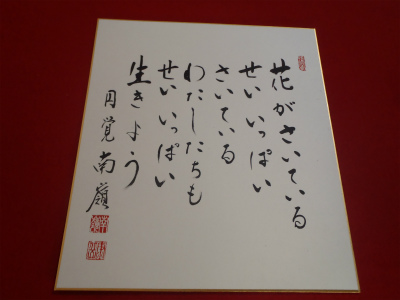 花がさいている
せいいっぱい
さいている
わたしたちも
せいいっぱい
生きよう
円覚 南嶺